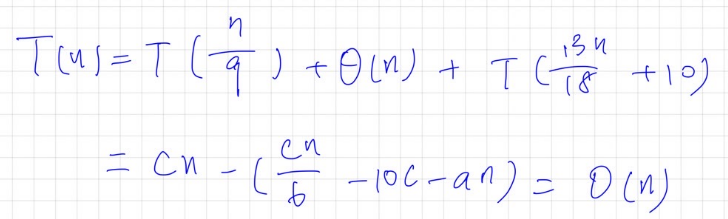 T(n) = T(n/9) + Θ(n) + T(13n/18 + 10)
= cn - (cn/6 - 10c - an) = O(n)